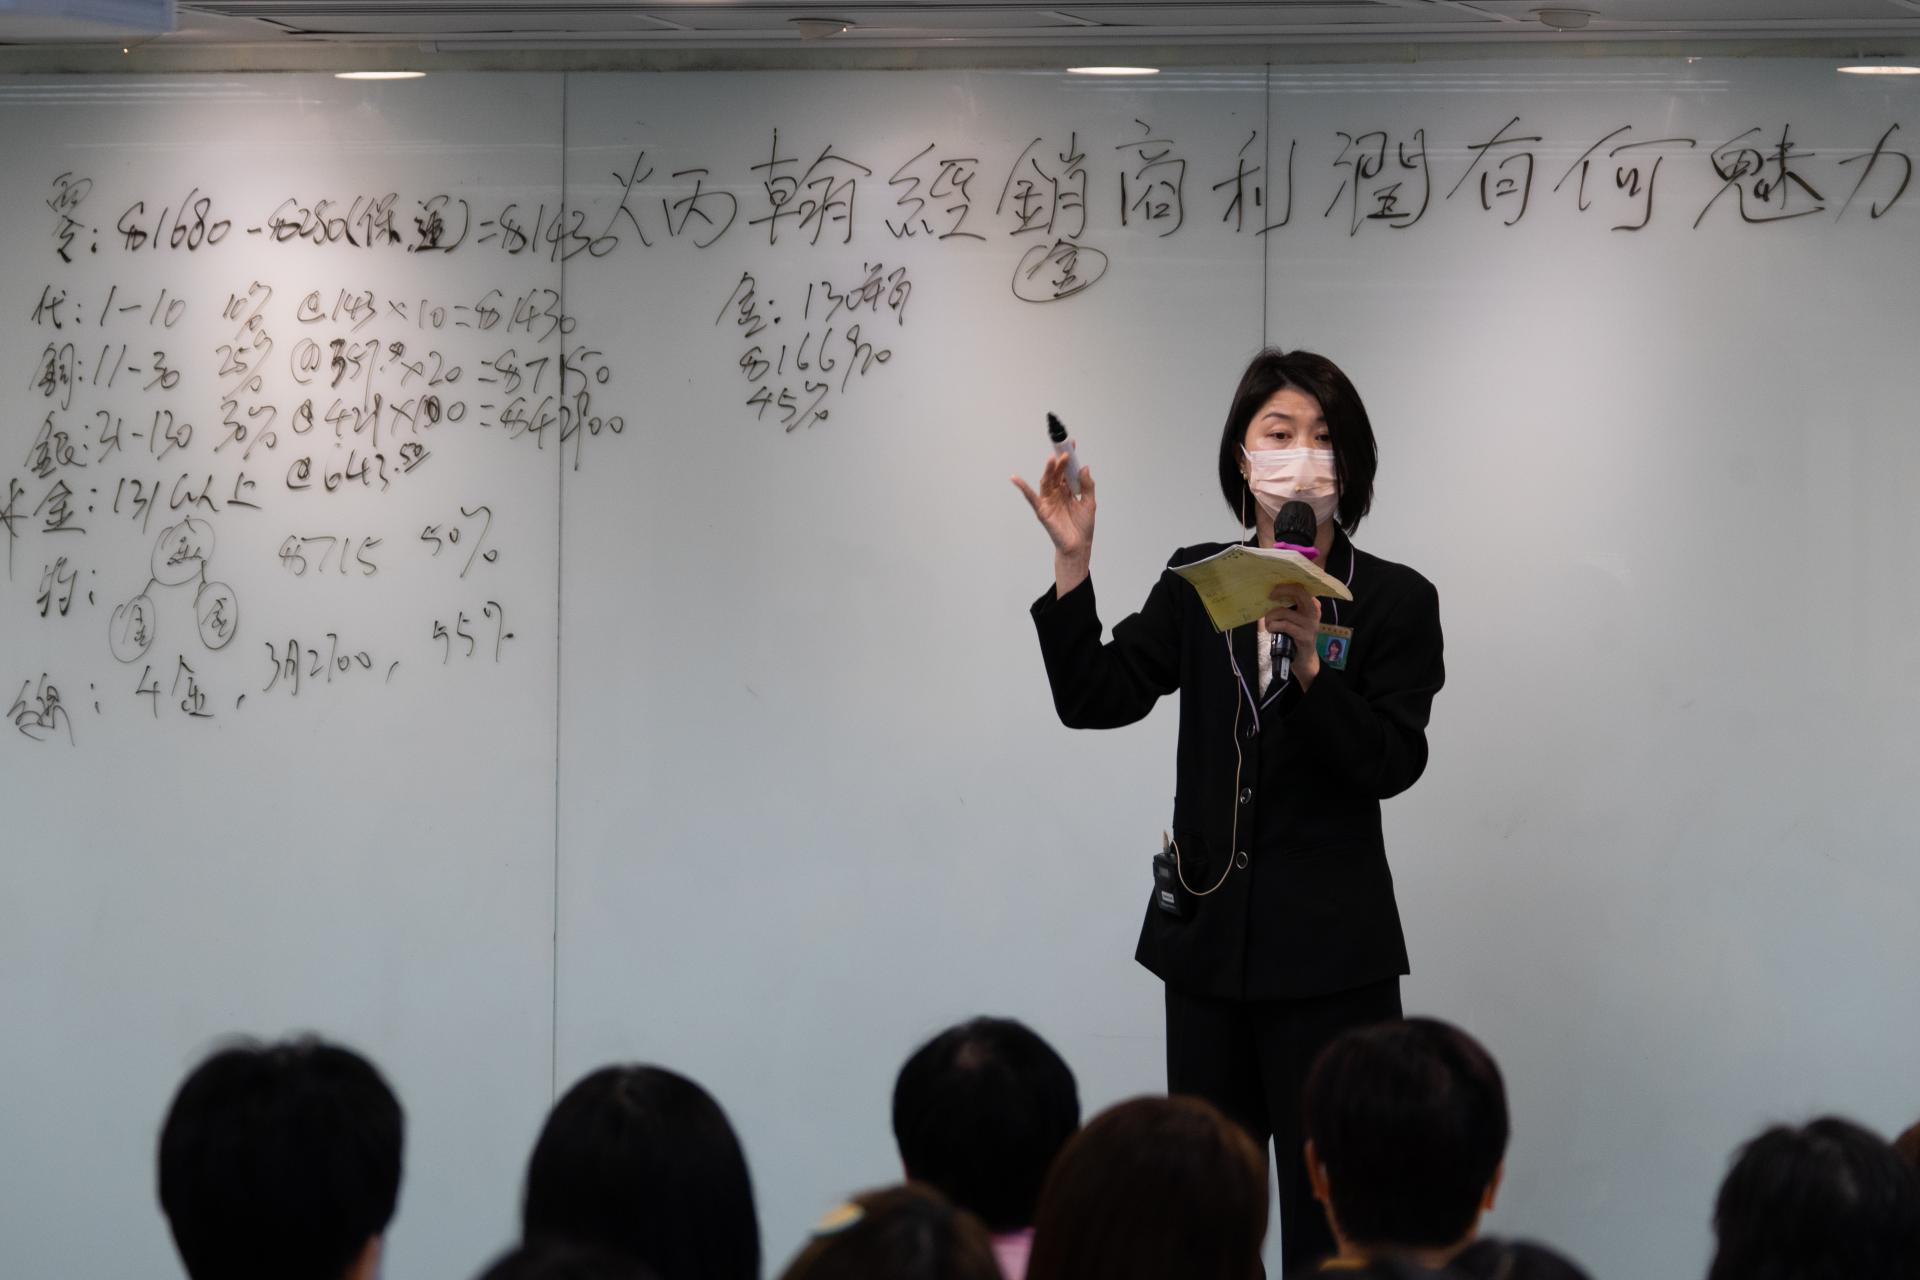 炳翰經銷商利潤有何魅力
零: $1680-$250(保.運)=$1430
代: 1-10 10% @143×10=$1430
銅: 11-30 25% @357.⁵⁰×20=$7150
銀: 31-130 30% @429×100=$42900
金: 131以上 @643.⁵⁰
鈞: 金 $715 50%
金 金
線: 4金, 3月2700, 55%
金
金: 130瓶
$166870
45%